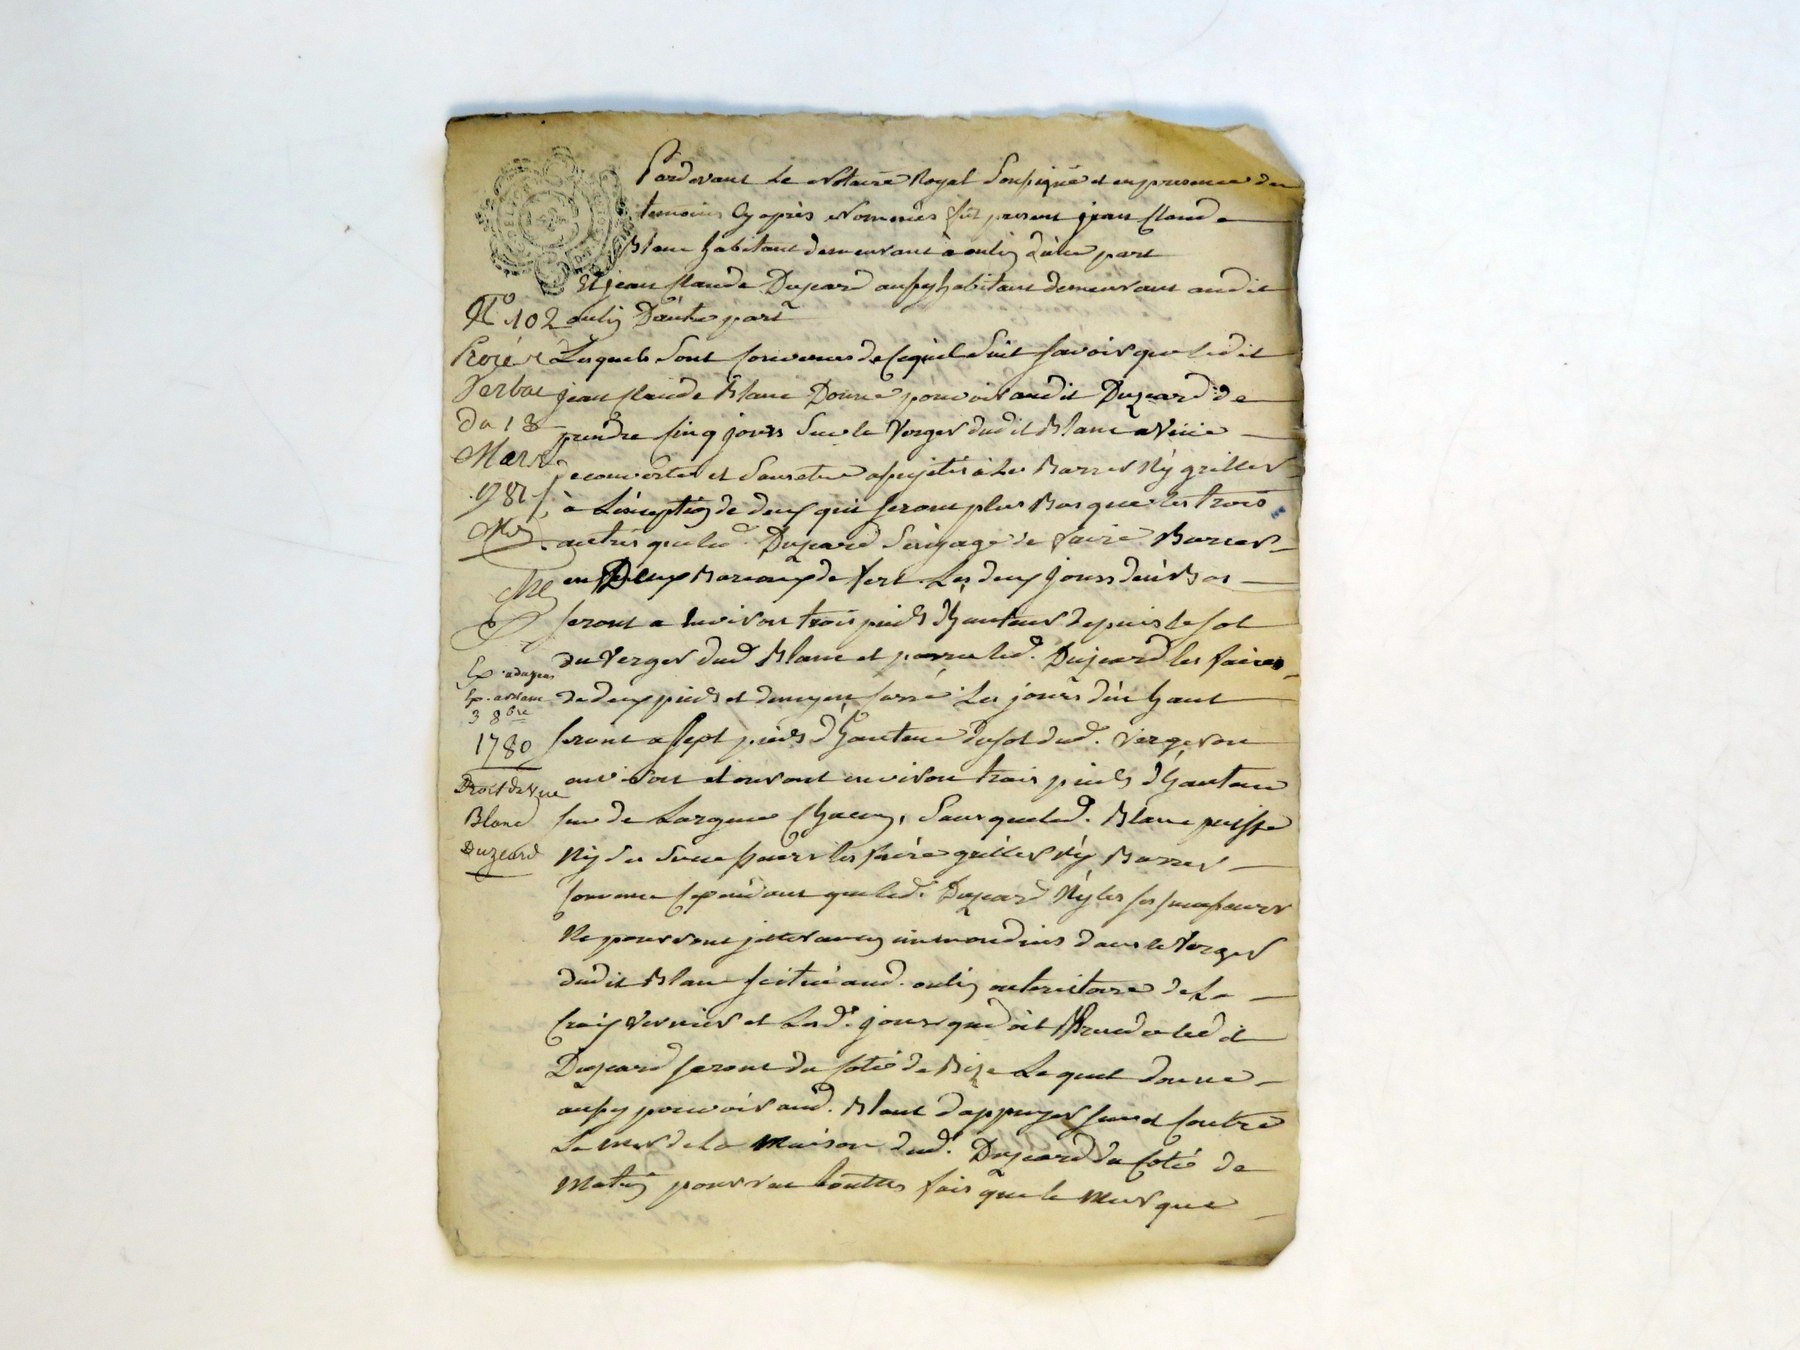 Pardevant Le Notaire Royal Soussigné et en presence des
temoins Cy après Nommés fut present jean Claude
Blanc habitant demeurant a oulin d'une part
Et jean Claude Duzeard aussy habitant demeurant audit
oulin D'autre part
Lesquels sont convenus de ce qui suit savoir que ledit
jean Claude Blanc Donne pouvoir audit Duzeard de
prendre cinq jours sur le Verger dudit Blanc a Veüe
decouverte et sans etre assujetis à Les Barrer Ny griller
à L'éxception de deux qui seront plus Bas que les trois
autres que led. Duzeard s'engage de faire Barrer
en Deux Barreaux de fert Les deux jours d'en Bas
seront a Environ trois pieds d'hauteur depuis le sol
du Verger dud Blanc et pourra led. Duzeard les faire
de deux pieds et demy en carré Les jours d'en haut
seront a sept pieds d'hauteur du sol dud. Verger ou
environ et auront environ trois pieds d'hauteur
sur de Largeur Chacun, sans que led. Blanc puisse
Ny ses successeurs les faire griller Ny Barrer
convenu cependant que led. Duzeard Ny les ses successeurs
Ne pourront jetter aucun immondices dans le Verger
dudit Blanc scitué aud. oulin au territoire de La
Croix Vernier et Lesd. jours que doit Prendre ledit
Duzeard seront du Coté de Bize Lequel donne
aussy pouvoir aud. Blanc d'appuyer sur et contre
Le mur de la Maison dud. Duzeard du Coté de
Matin pourvu toutes fois que le Mur que
N° 102
Verbal
Du 18
Mars
1781
3 8bre
1780
Droit de Vue
Blanc
Duzeard